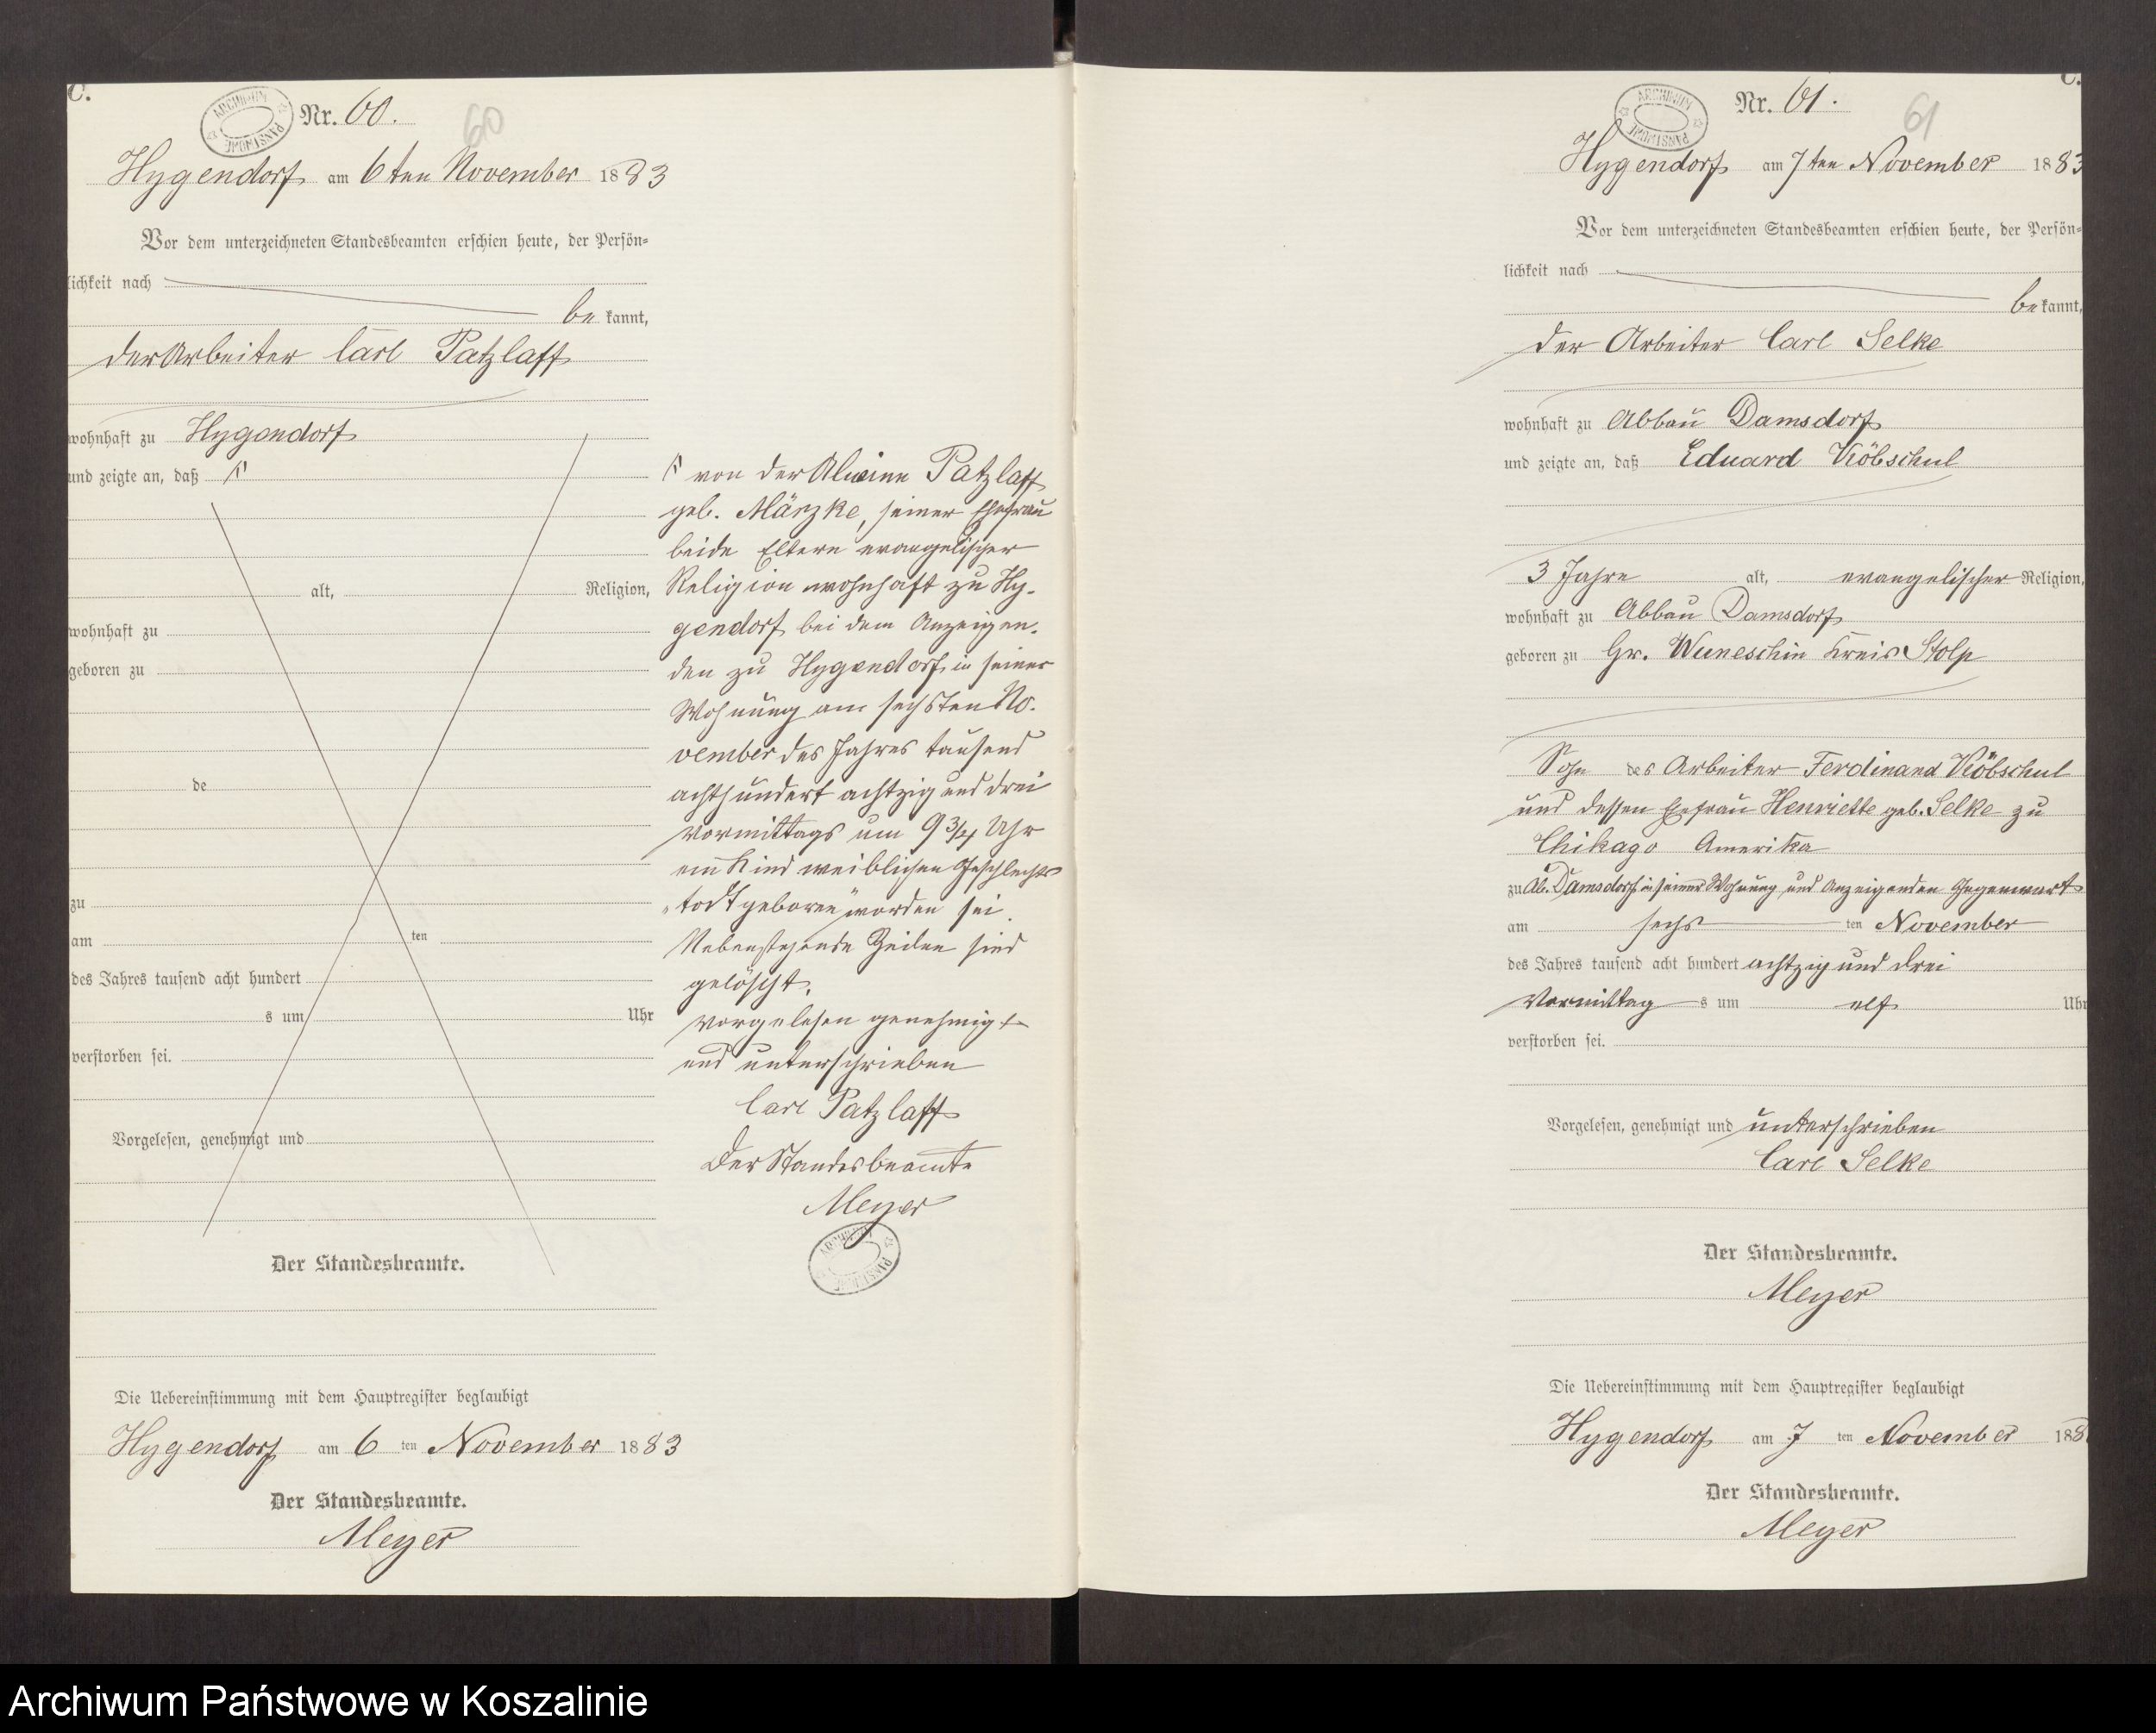 C.
ARCHIWUM PAŃSTWOWE
Nr. 60.
60
Hygendorf am 6ten November 1883
Vor dem unterzeichneten Standesbeamten erschien heute, der Persön=
lichkeit nach
be kannt,
der Arbeiter Carl Patzlaff
wohnhaft zu Hygendorf
und zeigte an, daß
alt, Religion,
wohnhaft zu
geboren zu
de
zu
am ten
des Jahres tausend acht hundert
s um Uhr
verstorben sei.
Vorgelesen, genehmigt und
Der Standesbeamte.
Die Uebereinstimmung mit dem Hauptregister beglaubigt
Hygendorf am 6 ten November 1883
Der Standesbeamte.
Meyer
von der Alwine Patzlaff
geb. Mänzke, seiner Ehefrau
beide Eltern evangelischer
Religion wohnhaft zu Hy-
gendorf bei dem Anzeigen-
den zu Hygendorf in seiner
Wohnung am sechsten No-
vember des Jahres tausend
achthundert achtzig und drei
vormittags um 9 3/4 Uhr
ein Kind weiblichen Geschlechts
"todtgeboren" worden sei.
Nebenstehende Zeilen sind
gelöscht.
vorgelesen genehmigt
und unterschrieben
Carl Patzlaff
Der Standesbeamte
Meyer
ARCHIWUM PAŃSTWOWE
C.
ARCHIWUM PAŃSTWOWE
Nr. 61.
61
Hygendorf am 7ten November 1883
Vor dem unterzeichneten Standesbeamten erschien heute, der Persön=
lichkeit nach
be kannt,
der Arbeiter Carl Selke
wohnhaft zu Abbau Damsdorf
und zeigte an, daß Eduard Köbschul
3 Jahre alt, evangelischer Religion,
wohnhaft zu Abbau Damsdorf
geboren zu Gr. Wuneschin Kreis Stolp
Sohn des Arbeiter Ferdinand Köbschul
und dessen Ehefrau Henriette geb. Selke zu
Chikago Amerika
zu Ab. Damsdorf in seiner Wohnung und Anzeigenden Gegenwart
am sechs ten November
des Jahres tausend acht hundert achtzig und drei
Vormittag s um elf Uhr
verstorben sei.
Vorgelesen, genehmigt und unterschrieben
Carl Selke
Der Standesbeamte.
Meyer
Die Uebereinstimmung mit dem Hauptregister beglaubigt
Hygendorf am 7 ten November 188
Der Standesbeamte.
Meyer
Archiwum Państwowe w Koszalinie